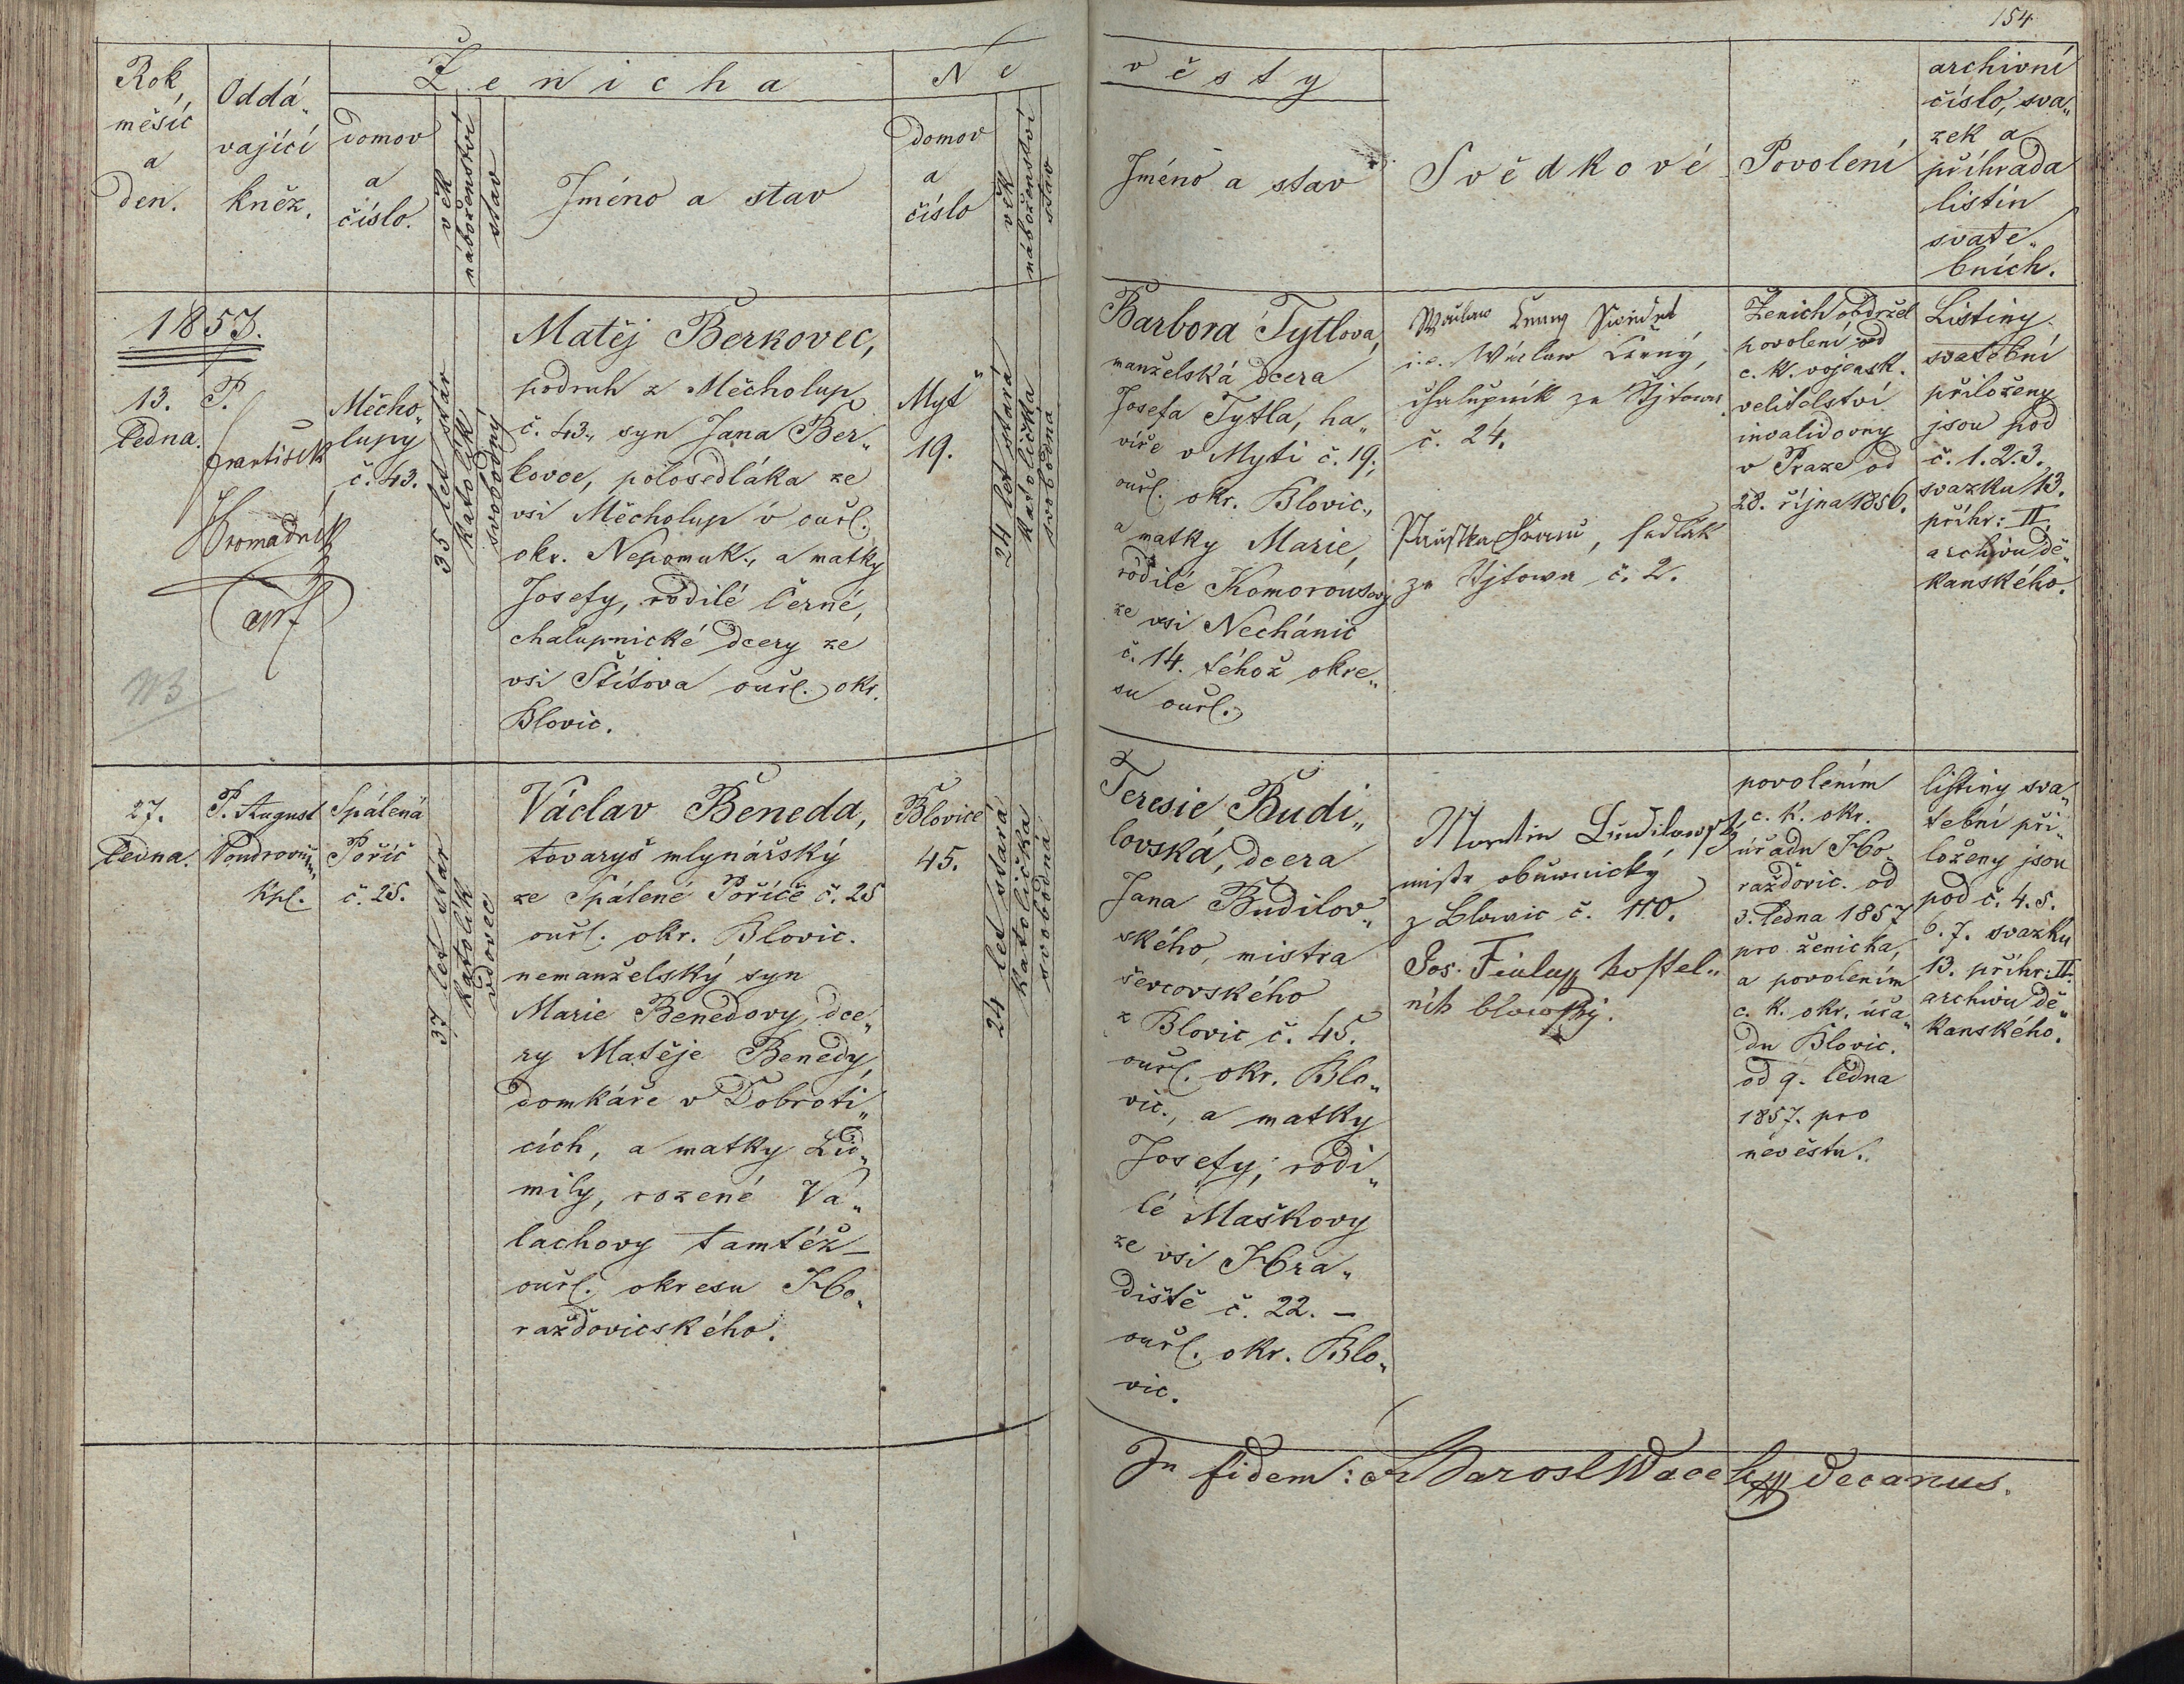 154
Rok,
měsíc
a
den.
Oddá„
vající
kněz.
Ženicha
domov
a
číslo.
věk
náboženství
stav
Jméno a stav
Ne
domov
a
číslo
věk
náboženství
stav
věsty
Jméno a stav
Svědkové
Povolení
archivní
číslo, sva„
zek a
příhrada
listin
svate„
bních.
1857.
13.
ledna.
P.
František
Hromadník
Měcho„
lupy
č. 43.
35 let stár
katolík
svobodný
Matěj Berkovec,
podruh z Měcholup
č. 43., syn Jana Ber„
kovce, polosedláka ze
vsi Měcholup v ouř.
okr. Nepomuk., a matky
Josefy, rodilé Černé,
chalupnické dcery ze
vsi Štítova ouř. okr.
Blovic.
Myť
19.
24 let stará
katolička
svobodna
Barbora Tytlova,
manželská dcera
Josefa Tytla, ha„
víře v Myti č. 19.,
ouř. okr. Blovic.,
a matky Marie,
rodilé Komorousovy
ze vsi Nechánic
č. 14. téhož okre„
su ouř.
Waclaw Cerny Swědek
i.e. Wáclaw Černý,
chalupník ze Štjtowa
č. 24.
, sedlák
ze Štjtowa č. 2.
Ženich obdržel
povolení od
c. k. vojensk.
velitelství
invalidovny
v Praze od
28. října 1856.
Listiny
svatební
přiloženy
jsou pod
č. 1. 2. 3.
svazku 13.
příhr: II.
archivu dě„
kanského.
27.
ledna.
P. August
Kpl.
Spálená
Poříč
č. 25.
37 let stár
katolík
vdovec
Václav Beneda,
tovaryš mlynářský
ze Spálené Poříče č. 25
ouř. okr. Blovic.
nemanželský syn
Marie Benedovy, dce„
ry Matěje Benedy,
domkáře v Dobroti„
cích, a matky Lid„
mily, rozené Va„
lachovy tamtéž –
ouř. okresu Ho„
raždovicského.
Blovice
45.
24 let stará
katolička
svobodná
Teresie Budi„
lovská, dcera
Jana Budilov„
ského, mistra
ševcovského
z Blovic č. 45.
ouř. okr. Blo„
vic., a matky
Josefy, rodi„
lé Maškovy
ze vsi Hra„
diště č. 22. –
ouř. okr. Blo„
vic.
Martin Budilowský
mistr obuwnický
z Blowic č. 110.
Jos. Fiala kostel„
ník blowský.
povolením
c. k. okr.
úřadu Ho„
raždovic. od
3. ledna 1857
pro ženicha,
a povolením
c. k. okr. úřa„
du Blovic.
od 9. ledna
1857. pro
nevěstu.
listiny sva„
tební při„
loženy jsou
pod č. 4. 5.
6. 7. svazku
13. příhr: II.
archivu dě„
kanského.
In fidem: decanus.